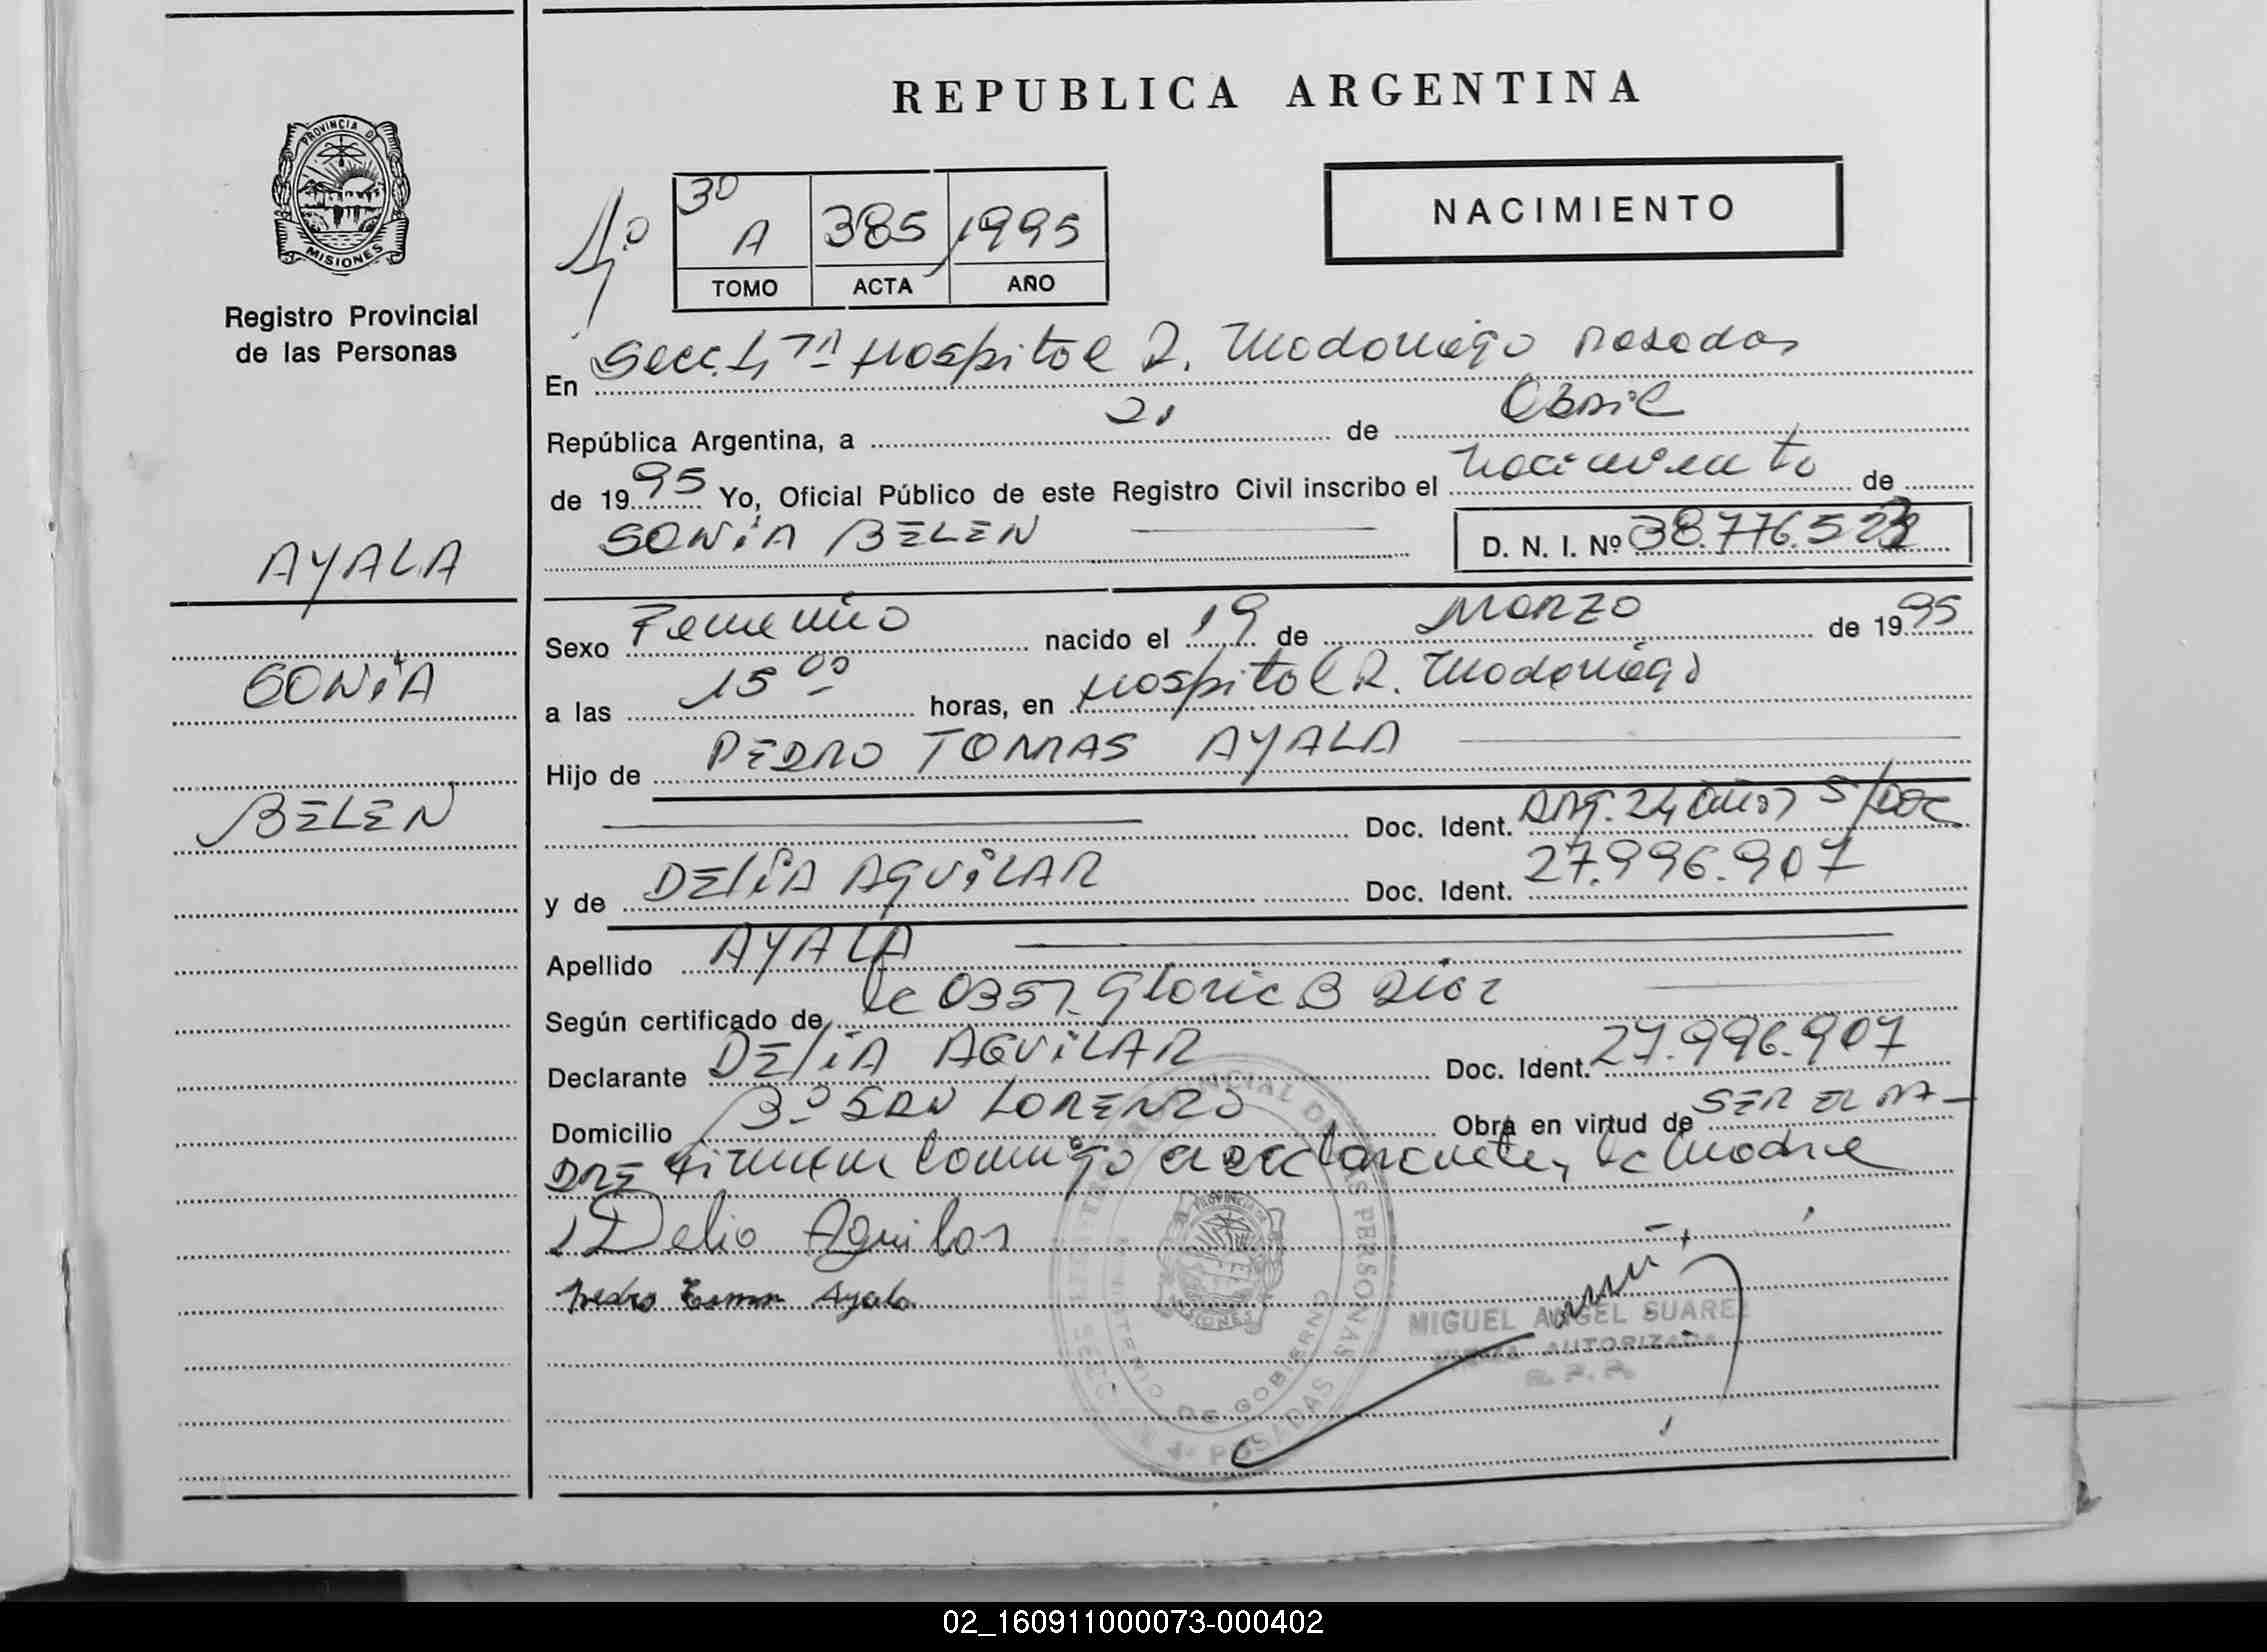 REPUBLICA ARGENTINA
PROVINCIA D
MISIONES
Registro Provincial
de las Personas
4º
3º
A 385 1995
TOMO ACTA AÑO
NACIMIENTO
En Secc. 4ta Hospital R. Madariaga Posadas
República Argentina, a 21 de Abril
de 1995 Yo, Oficial Público de este Registro Civil inscribo el nacimiento de
SONIA BELEN D. N. I. Nº 38.776.5
AYALA
SONIA
BELEN
Sexo Femenino nacido el 19 de MARZO de 1995
a las 15 00 horas, en Hospital R. Madariaga
Hijo de PEDRO TOMAS AYALA
Doc. Ident. Arg. 24 años S/Doc
y de DELIA AGUILAR Doc. Ident. 27.996.907
Apellido AYALA
Según certificado de 0357 Gloria B Diaz
Declarante DELIA AGUILAR Doc. Ident. 27.996.907
Domicilio Bº SAN LORENZO Obra en virtud de SER EL PA-
DRE Firman conmigo el declarante y la madre
Delia Aguilar
Pedro Tomas Ayala
MIGUEL ANGEL SUAREZ
FIRMA AUTORIZADA
R. P. P.
PROVINCIAL DE LAS PERSONAS
MINISTERIO DE GOBIERNO
4ª POSADAS
02_160911000073-000402